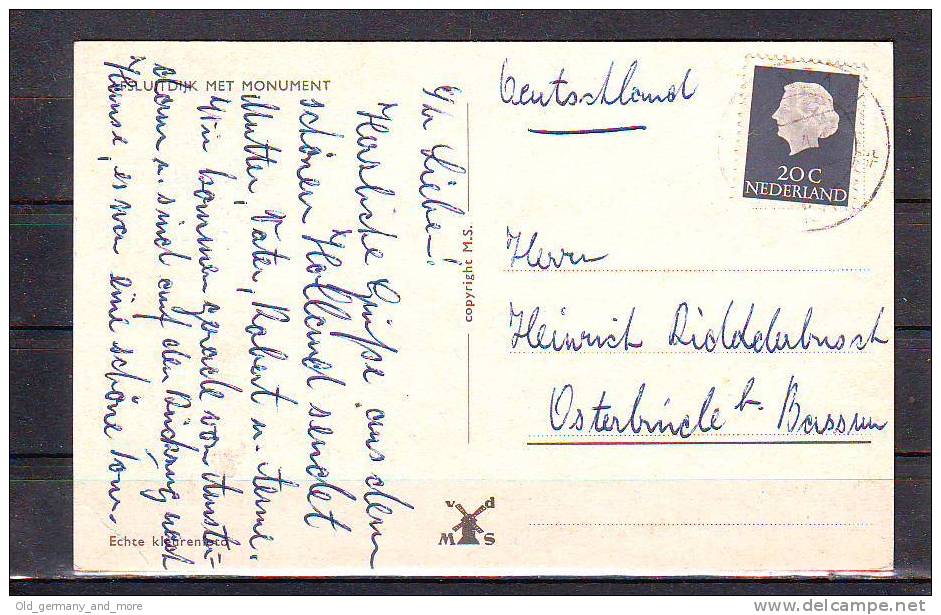 AFSLUITDIJK MET MONUMENT
Ihr Lieben!
Herzliche Grüße aus dem
schönen Holland sendet
Mutter, Vater, Robert u. Anne.
Wir kommen gerade von Amster-
dam u. sind auf den Rückzug nach
Hause, es war eine schöne Tour.
Echte kleurenfoto
copyright M.S.
v d
M S
Deutschland
20 C
NEDERLAND
Herrn
Heinrich Ridderbusch
Osterbinde b. Bassum
Old_germany_and_more
www.delcampe.net